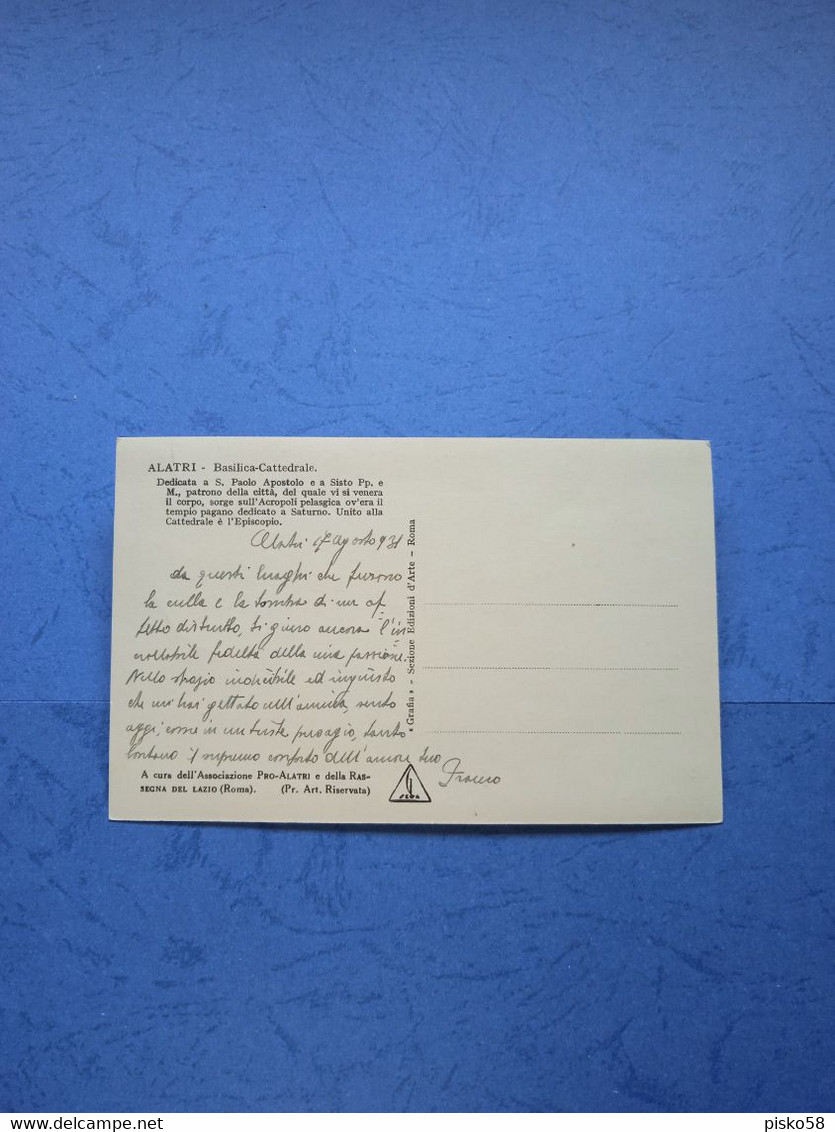 ALATRI - Basilica-Cattedrale.
Dedicata a S. Paolo Apostolo e a Sisto Pp. e
M., patrono della città, del quale vi si venera
il corpo, sorge sull'Acropoli pelasgica ov'era il
tempio pagano dedicato a Saturno. Unito alla
Cattedrale è l'Episcopio.
Alatri 17 agosto 931
da questi luoghi che furono
la culla e la tomba di un af-
fetto distrutto, ti giuro ancora l'in
crollabile fedeltà della mia passione.
Nello strazio indicibile ed ingiusto
che mi hai gettato nell'anima, sento
oggi, come in un triste presagio, tanto
lontano il supremo conforto dell'amore tuo
Franco
A cura dell'Associazione PRO-ALATRI e della RAS-
SEGNA DEL LAZIO (Roma). (Pr. Art. Riservata)
« Grafia » - Sezione Edizioni d'Arte - Roma
pisko58